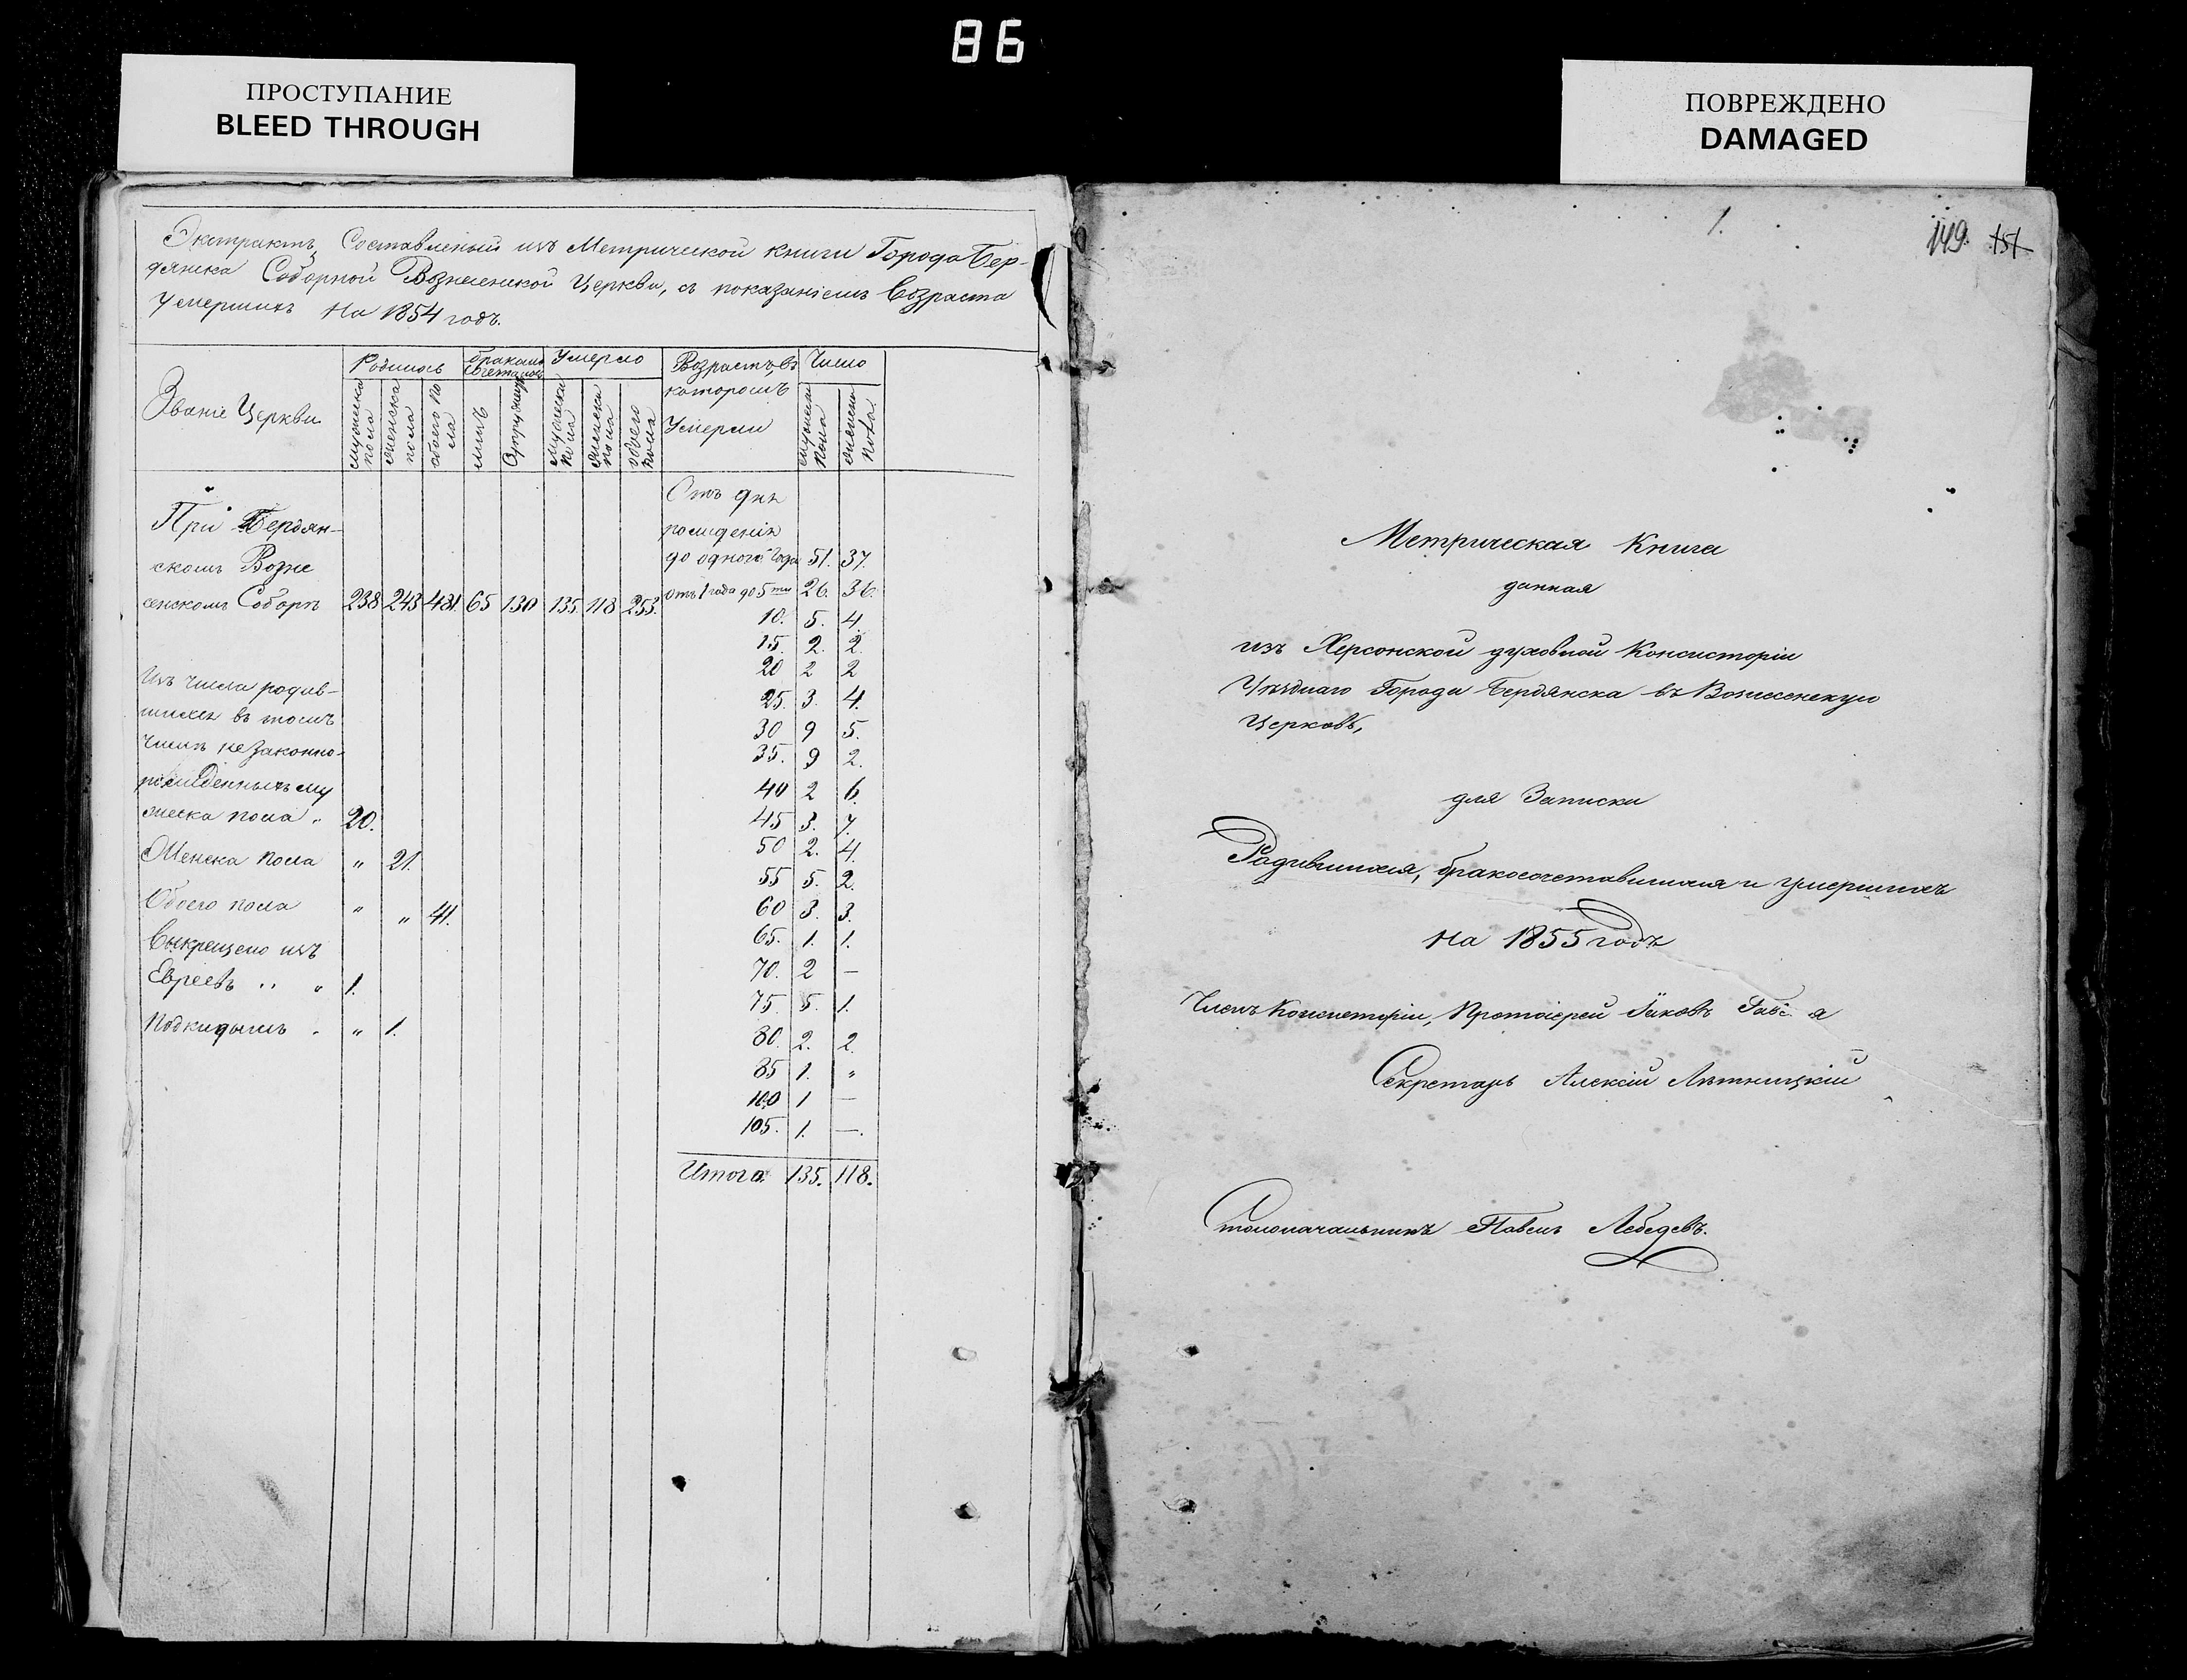 86
ПРОСТУПАНИЕ
BLEED THROUGH
ПОВРЕЖДЕНО
DAMAGED
Экстрактъ, Составленый изъ Метрической книги Города Бер-
дянска Соборной Вознесенской Церкви, съ показаніемъ Возраста
Умершихъ На 1854 годъ.
Званіе Церкви
Родилось
бракомъ
Умерло
Возрастъ, въ
котором­ъ
Умерли
Число
мужеска пола
женска пола
обоего пола
лицъ
мужеска пола
женска пола
обоего пола
мужеска пола
женска пола
При Бердян-
скомъ Возне
сенскомъ Соборѣ 238 243 481. 65 130 135. 118 253.
Отъ дня
рожденія
до одного года 51. 37.
отъ 1 года до 5ти 26. 36.
10. 5. 4.
15. 2. 2.
20 2 2
25. 3. 4.
30 9 5.
35. 9 2.
40 2 6.
45 3. 7.
50 2. 4.
55 5. 2.
60 3. 3.
65. 1. 1.
70. 2 —
75. 5. 1.
80. 2. 2.
85 1. "
100 1 —
105. 1. —.
Итого 135. 118.
Изъ числа родив-
шихся въ томъ
числѣ незаконно-
рожденныхъ му
жеска пола " 20.
Женска пола " 21.
Обоего пола " " 41.
Выкрещено изъ
Евреевъ " " 1.
Подкидышъ " " 1.
1.
149. 151
Метрическая Книга
данная
изъ Херсонской духовной Консисторіи
Уѣзднаго Города Бердянска въ Вознесенскую
Церковь,
для Записки
Родившихся, бракосочетавшихся и умершихъ
на 1855 годъ
Членъ Консисторіи, Протоіерей Іаковъ
Секретарь Алексій Лѣтницкій
Столоначальникъ Павелъ Лебедевъ.